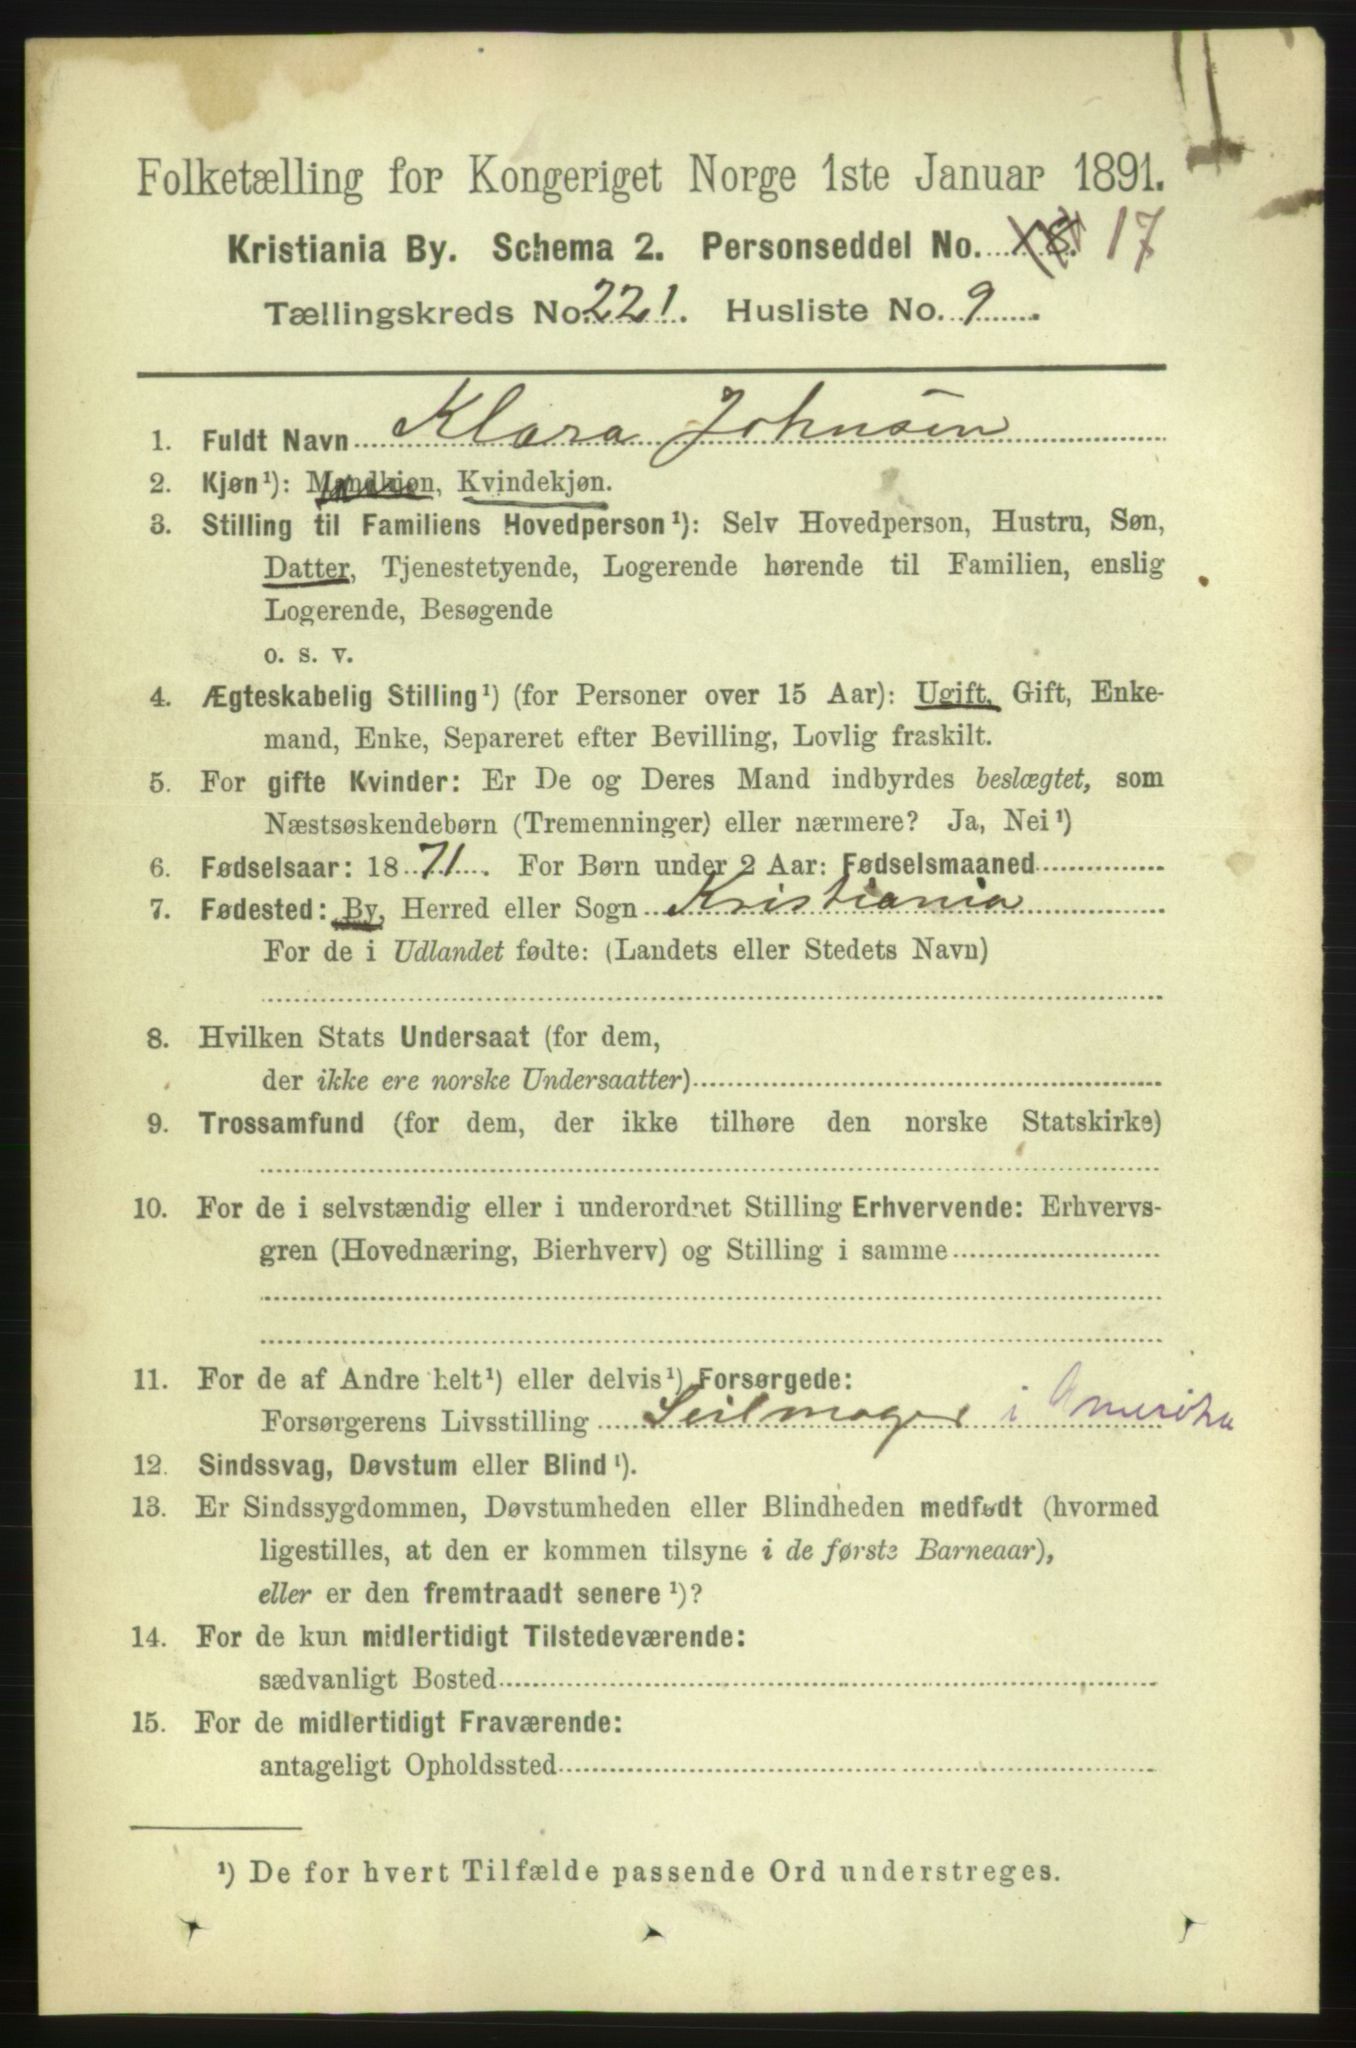 Folketælling for Kongeriget Norge 1ste Januar 1891.
Kristiania By. Schema 2. Personseddel No. 18. 17
Tællingskreds No. 221. Husliste No. 9
1. Fuldt Navn Klara Johnsen
2. Kjøn¹): Mandkjøn, Kvindekjøn.
3. Stilling til Familiens Hovedperson¹): Selv Hovedperson, Hustru, Søn,
Datter, Tjenestetyende, Logerende hørende til Familien, enslig
Logerende, Besøgende
o. s. v.
4. Ægteskabelig Stilling¹) (for Personer over 15 Aar): Ugift, Gift, Enke-
mand, Enke, Separeret efter Bevilling, Lovlig fraskilt.
5. For gifte Kvinder: Er De og Deres Mand indbyrdes beslægtet, som
Næstsøskendebørn (Tremenninger) eller nærmere? Ja, Nei¹)
6. Fødselsaar: 1871. For Børn under 2 Aar: Fødselsmaaned
7. Fødested: By, Herred eller Sogn Kristiania
For de i Udlandet fødte: (Landets eller Stedets Navn)
8. Hvilken Stats Undersaat (for dem,
der ikke ere norske Undersaatter)
9. Trossamfund (for dem, der ikke tilhøre den norske Statskirke)
10. For de i selvstændig eller i underordnet Stilling Erhvervende: Erhvervs-
gren (Hovednæring, Bierhverv) og Stilling i samme
11. For de af Andre helt¹) eller delvis¹) Forsørgede:
Forsørgerens Livsstilling Seilmager i Amerika
12. Sindssvag, Døvstum eller Blind¹).
13. Er Sindssygdommen, Døvstumheden eller Blindheden medfødt (hvormed
ligestilles, at den er kommen tilsyne i de første Barneaar),
eller er den fremtraadt senere¹)?
14. For de kun midlertidigt Tilstedeværende:
sædvanligt Bosted
15. For de midlertidigt Fraværende:
antageligt Opholdssted
¹) De for hvert Tilfælde passende Ord understreges.